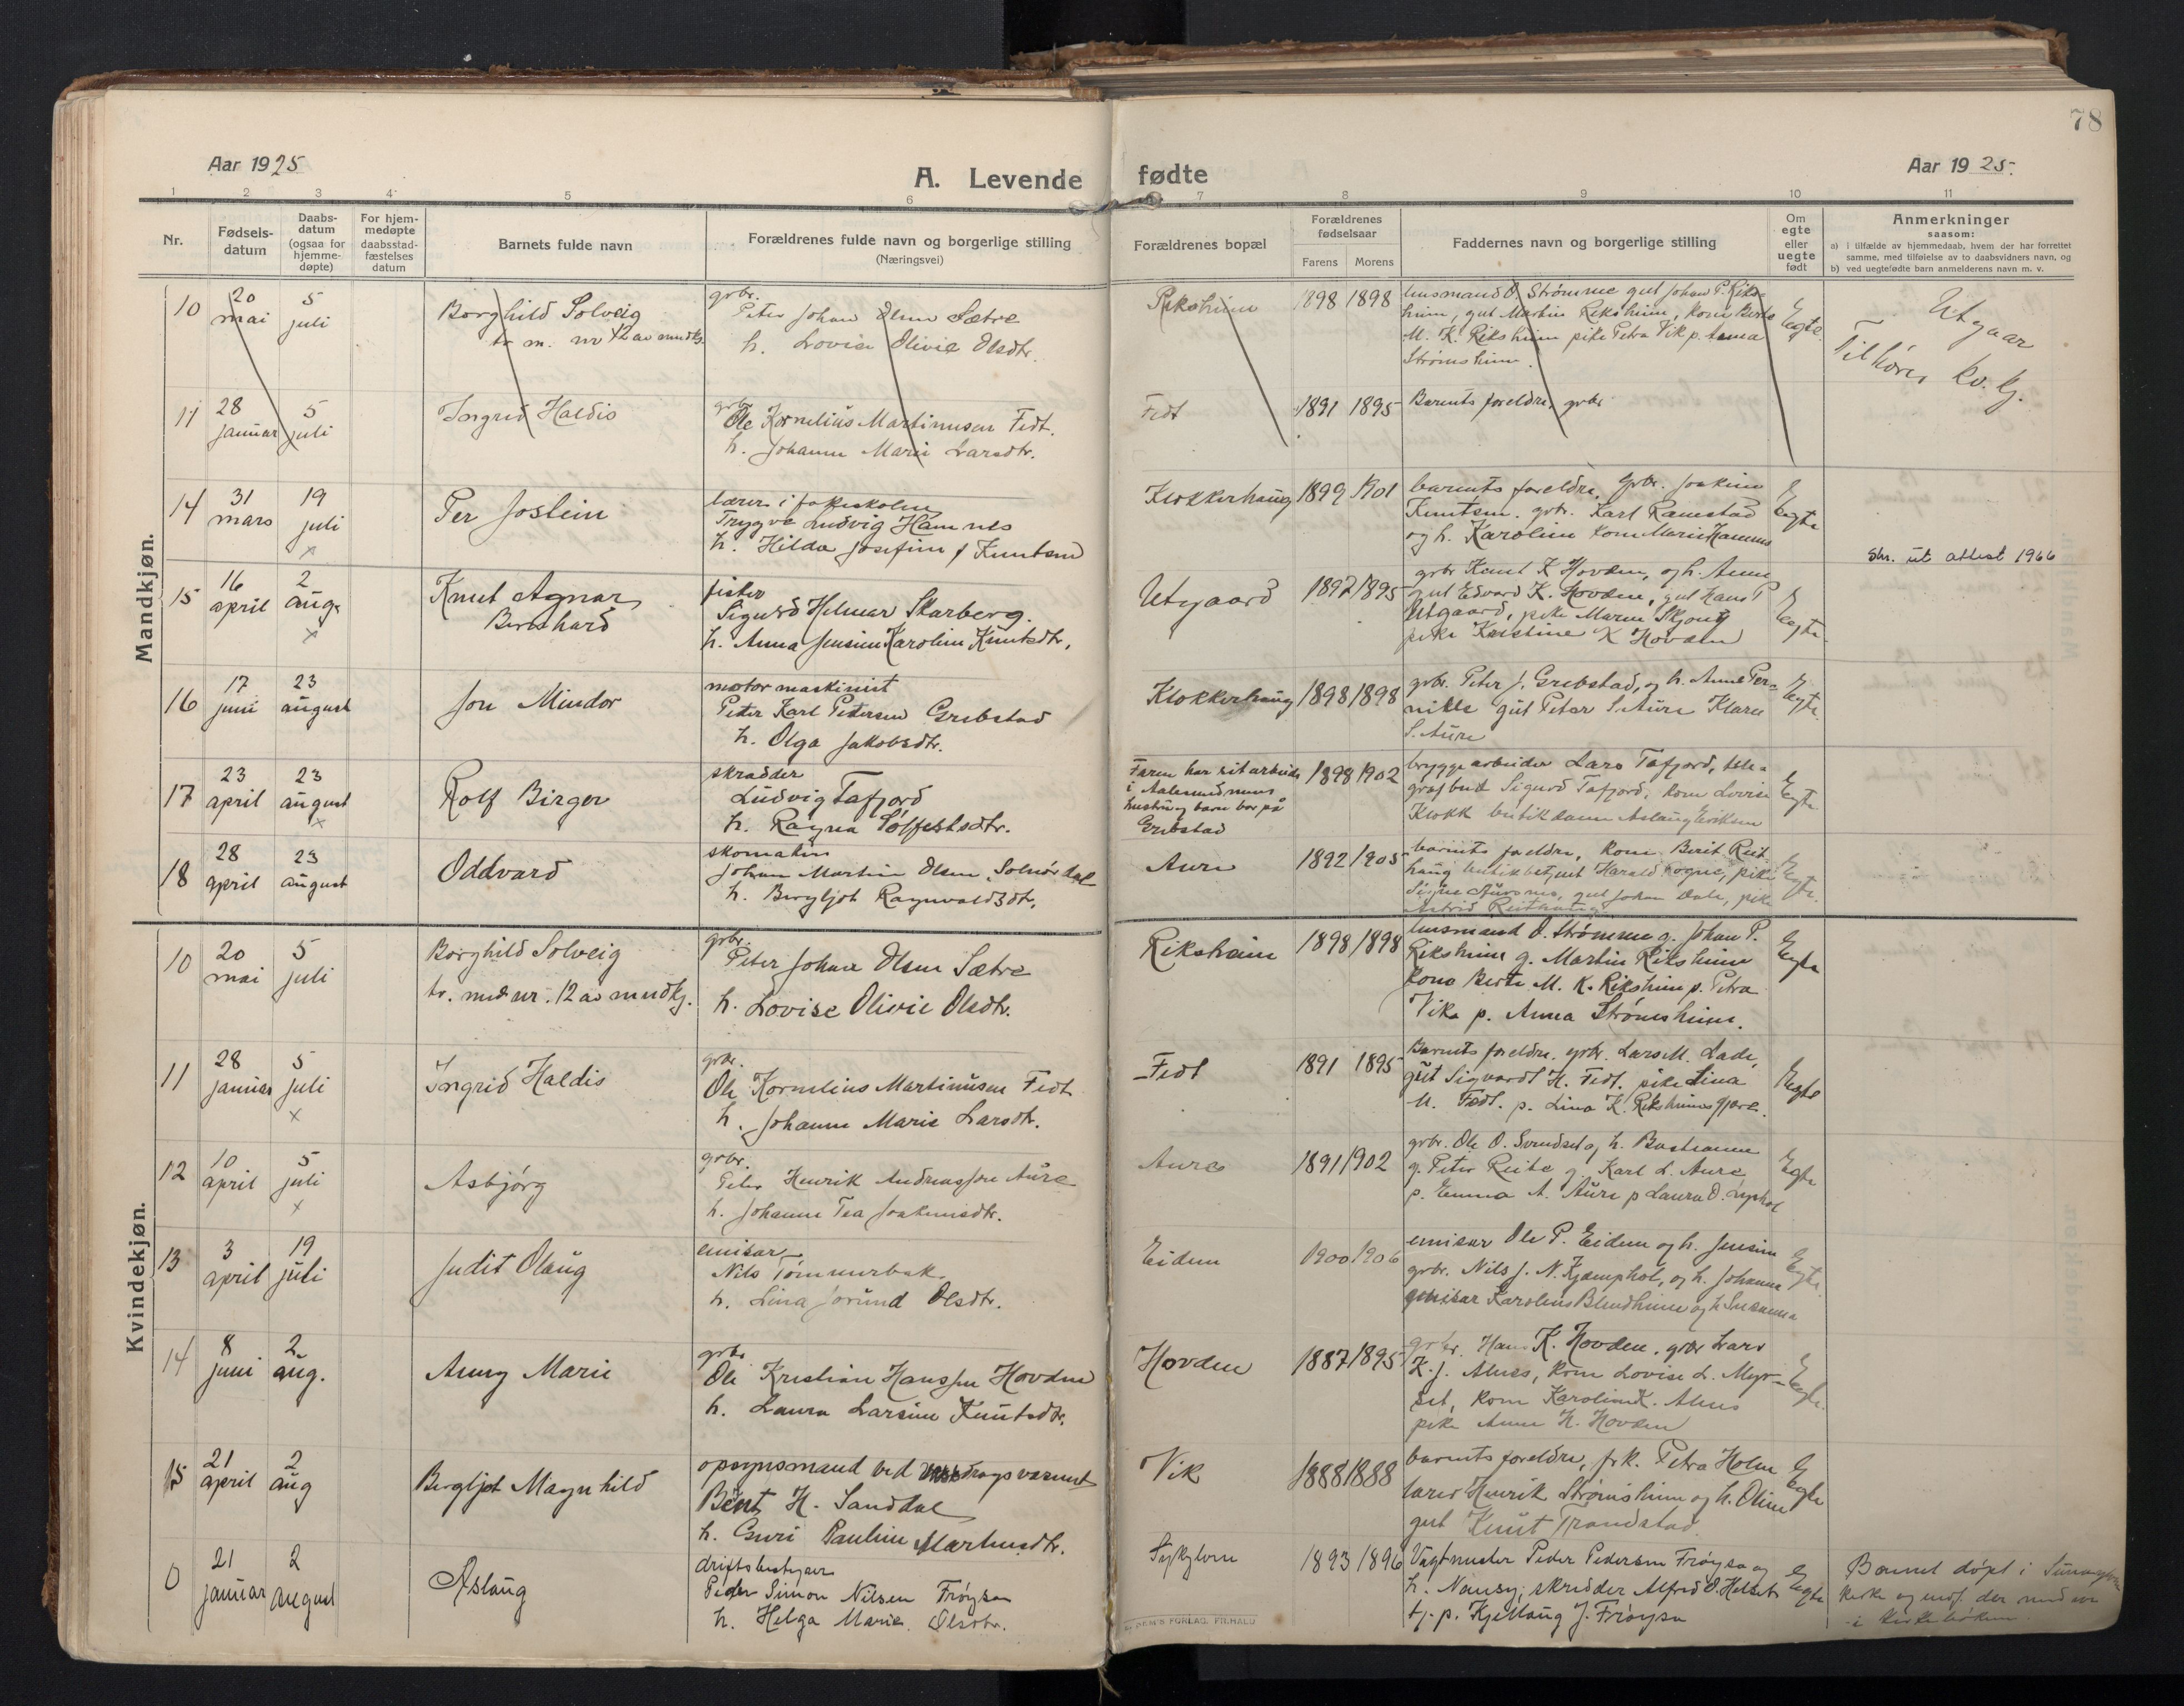 78
Aar 1925
A. Levende
fødte
Aar 1925.
1 2 3 4 5 6 7 8 9 10 11
Nr.
Fødsels-
datum
Daabs-
datum
(ogsaa for
hjemme-
døpte)
For hjem-
medøpte
daabsstad-
fæstelses
datum
Barnets fulde navn
Forældrenes fulde navn og borgerlige stilling
(Næringsvei)
Forældrenes bopæl
Forældrenes
fødselsaar
Farens Morens
Faddernes navn og borgerlige stilling
Om
egte
eller
uegte
født
Anmerkninger
saasom:
a) i tilfælde av hjemmedaab, hvem der har forrettet
samme, med tilføielse av to daabsvidners navn, og
b) ved uegtefødte barn anmelderens navn m. v.
Mandkjøn.
10
20
mai
5
juli
Borghild Solveig
tv. m. nr 12 av mndkj.
grbr.
Peter Johan Olsen Sætre
h. Lovise Olivie Olsdtr.
Riksheim
1898 1898
husmand O. Strømme gut Johan P. Riks-
heim, gut Martin Riksheim, kone Berte
M. K. Riksheim pike Petra Vik p. Anna
Strømsheim.
Egte.
Utgaar
Tilhører kv. kj.
11
28
januar
5
juli
Ingrid Haldis
grbr.
Ole Kornelius Martinusen Fedt.
h. Johanne Marie Larsdtr.
Fedt
1891 1895
Barnets foreldre, grbr.
14
31
mars
19
juli
x
Per Jostein
lærer i folkeskolen
Trygve Ludvig Hamnes
h. Hilda Josefine f Knutsen
Klokkerhaug
1899 1901
barnets foreldre, grbr. Joakim
Knutsen. grbr. Karl Ramstad
og h. Karoline kone Marie Hamnes
Egte
Skr. ut attest 1966
15
16
april
2
aug.
x
Knut Agnar
Bernhard
fisker
Sigurd Helmer Skarberg.
h. Anna Jensine Karoline Knutsdtr.
Utgaard
1897 1895
grbr Knut K Hovden, og h. Anne
gut Edvard K. Hovden, gut Hans P
Utgaard, pike Maren Skjong
pike Kristine K Hovden
Egte.
16
17
juni
23
august
Jon Mindor
motormaskinist
Peter Karl Petersen Grebstad
h. Olga Jakobsdtr.
Klokkerhaug
1898 1898
grbr. Peter J. Grebstad, og h. Anne Per-
nille gut Peter S. Aure Klara
S. Aure
Egte.
17
23
april
23
august
x
Rolf Birger
skrædder
Ludvig Tafjord
h. Ragna Solfestsdtr.
Faren har sit arbeide
i Aalesund mens
hustru og barn bor på
Grebstad
1898 1902
bryggearbeider Lars Tafjord, tele-
grafbud Sigurd Tafjord, kone Lovise
Klokk butikdame Aslaug Eriksen
Egte.
18
28
april
23
august
Oddvard
skomaker
Johan Martin Olsen Solnørdal
h. Bergljot Ragnvaldsdtr.
Aure
1892 1905
barnets foreldre, kone Berit Reit
haug butikbetjent Harald Rogne, pike
gut Johan Dale, pike
Astrid Reithaug.
Egte.
Kvindekjøn.
10
20
mai
5
juli
Borghild Solveig
tv. med nr. 12 av mndkj.
grbr.
Peter Johan Olsen Sætre
h. Lovise Olivie Olsdtr.
Riksheim
1898 1898
husmand O. Strømme g. Johan P.
Riksheim g. Martin Riksheim
kone Berte M. K. Riksheim p. Petra
Vik p. Anna Strømsheim.
Egte
11
28
januar
5
juli
x
Ingrid Haldis
grbr.
Ole Kornelius Martinusen Fedt
h. Johanne Marie Larsdtr.
Fedt
1891 1895
Barnets foreldre. grbr. Lars M. Lade,
gut Sigvardt H. Fedt. pike Lina
M. Fedt. p. Lina K. Riksheimsgjære.
Egte
12
10
april
5
juli
x
Asbjørg
grbr.
Peter Henrik Andreassen Aure
h. Johanne Tea Joakimsdtr.
Aure
1891 1902
grbr. Ole O. Svendset og h. Bastianne
g. Peter Reite g. Karl L. Aure
p. Emma A. Aure p Laura O.
Egte
13
3
april
19
juli
Judit Olaug
emisær
Nils Tømmerbak
h. Lina Jorund Olsdtr.
Eidem
1900 1906
emisær Ole P. Eidem og h. Jensine
grbr. Nils J. N. Kjæmphol, og h. Johanna
emisær Karolius Blindheim og h Susanna
Egte.
14
8
juni
2
aug.
Anny Marie
grbr.
Ole Kristian Hanssen Hovden
h. Laura Larsine Knutsdtr.
Hovden
1887 1895
grbr. Hans K. Hovden, grbr Lars
K. J. Alnes, kone Lovise L. Myr-
set, kone Karoline K. Alnes
pike Anne H. Hovden
Egte.
15
21
april
2
aug
Bergljot Magnhild
opsynsmand ved vasdragsvæsenet
Bernt H. Sanddal
h. Guri Pauline Martinusdtr.
Vik
1888 1888
barnets foreldre, frk. Petra Holm
lærer Henrik Strømsheim og h. Oline
gut Knut Trandstad.
Egte
0
21
januar
2
august
Aslaug
driftsbestyrer
Peder Simon Nilsen Frøysa
h. Helga Marie Olsdtr.
Sykylven
1893 1896
Vagtmester Peder Pedersen Frøysa og
h. Nansy, skredder Alfred O. Helset
tj. p. Kjellaug J. Frøysa
Egte
Barnet døpt i
kirke og indf. der med nr
i kirkeboken.
SEM'S FORLAG. FR.HALD